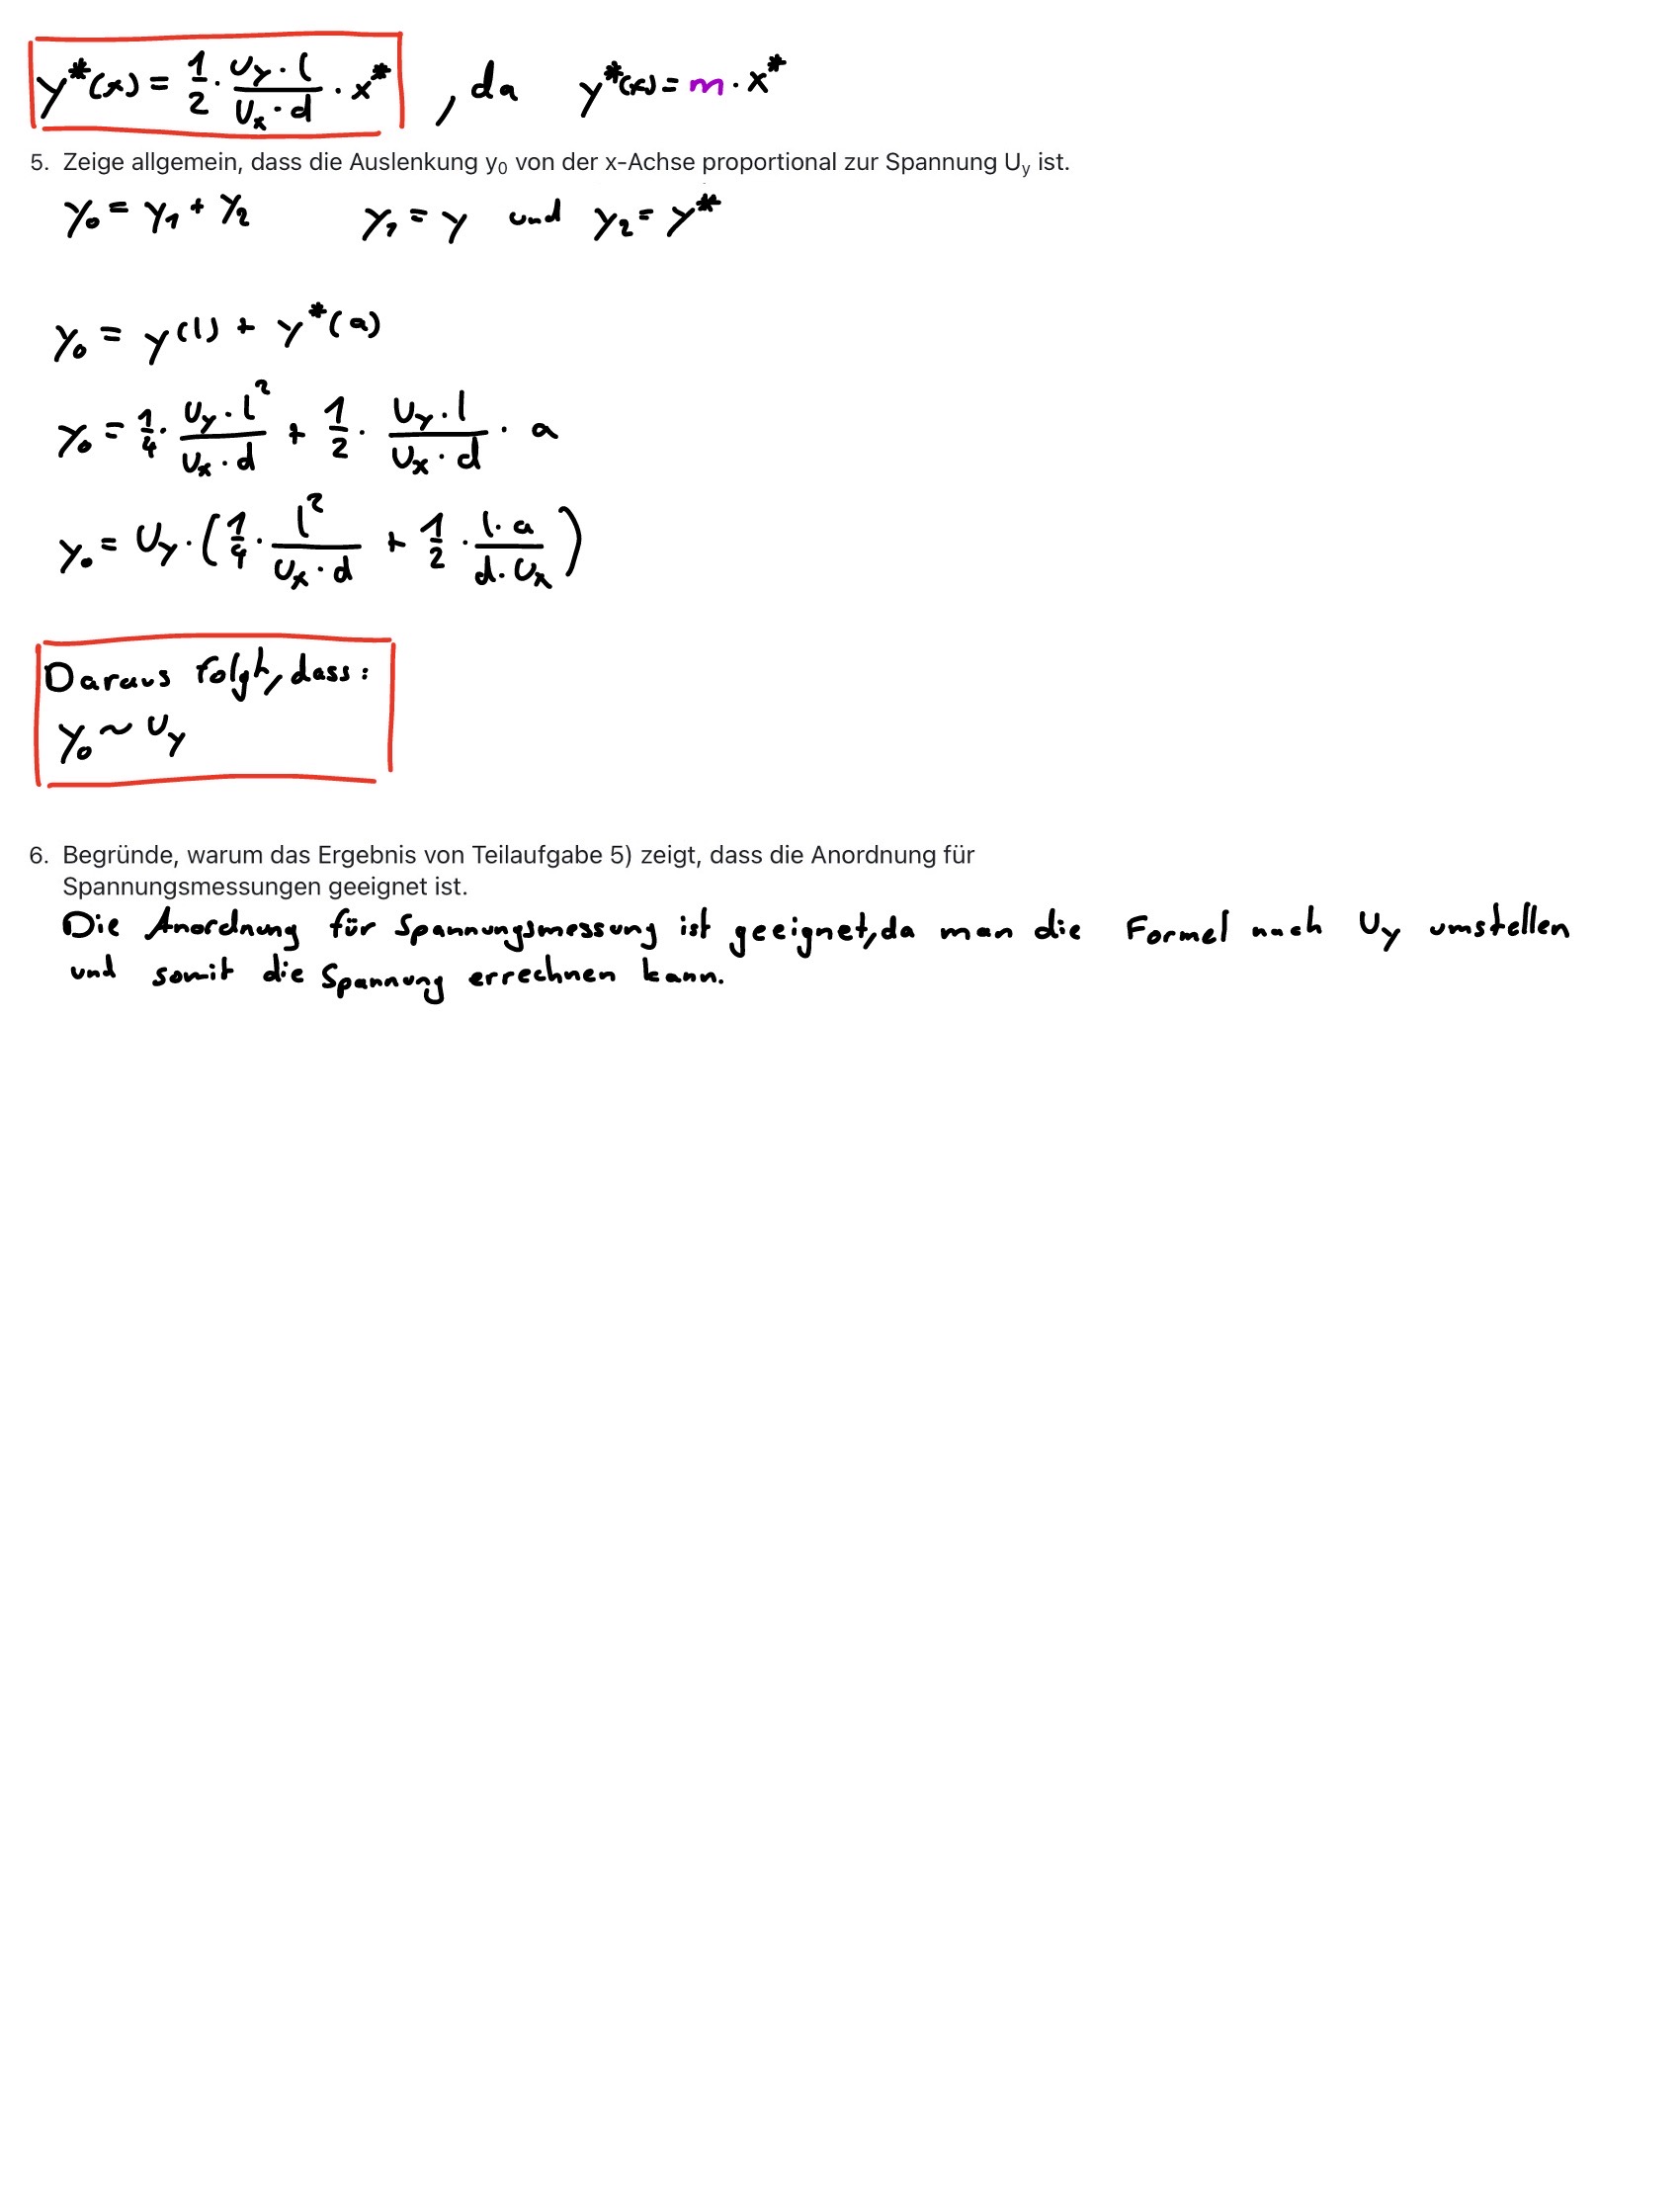 y*(x) = 1/2 · (U_y · l)/(U_x · d) · x* , da y*(x) = m · x*
5. Zeige allgemein, dass die Auslenkung y₀ von der x-Achse proportional zur Spannung U_y ist.
y₀ = y₁ + y₂ y₁ = y und y₂ = y*
y₀ = y(l) + y*(a)
y₀ = 1/4 · (U_y · l²)/(U_x · d) + 1/2 · (U_y · l)/(U_x · d) · a
y₀ = U_y · (1/4 · l²/(U_x · d) + 1/2 · (l · a)/(d · U_x))
Daraus folgt, dass:
y₀ ~ U_y
6. Begründe, warum das Ergebnis von Teilaufgabe 5) zeigt, dass die Anordnung für
Spannungsmessungen geeignet ist.
Die Anordnung für Spannungsmessung ist geeignet, da man die Formel nach U_y umstellen
und somit die Spannung errechnen kann.